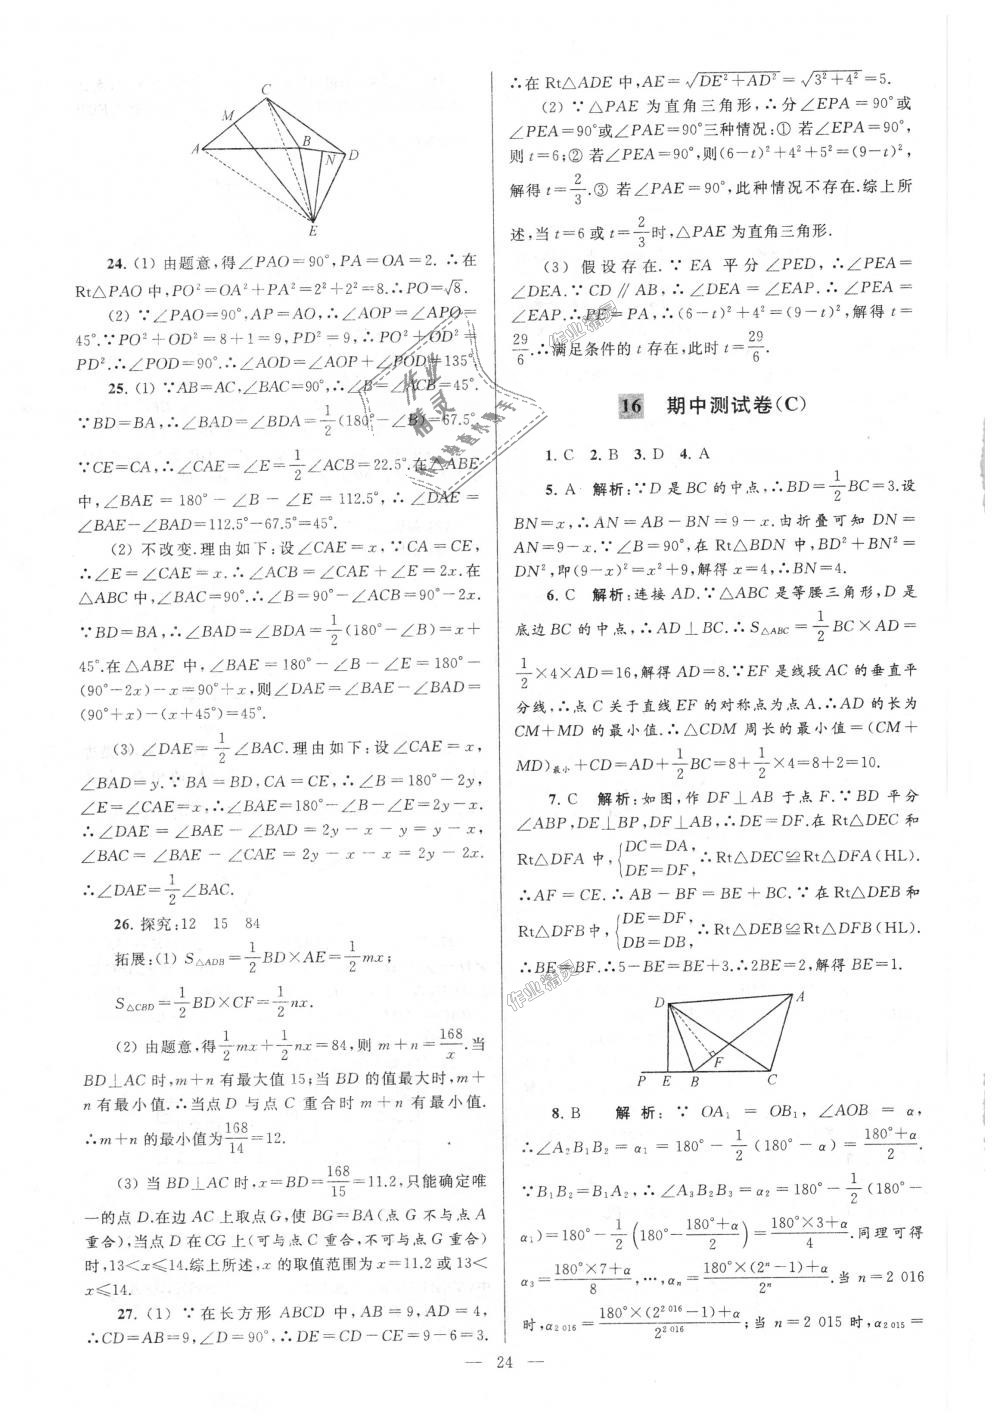 C
M
A
B
N
D
E
24. (1) 由题意,得∠PAO=90°,PA=OA=2. ∴在
Rt△PAO 中,PO²=OA²+PA²=2²+2²=8.∴PO=√8.
(2) ∵∠PAO=90°,AP=AO,∴∠AOP=∠APO=
45°.∵PO²+OD²=8+1=9,PD²=9,∴PO²+OD²=
PD².∴∠POD=90°.∴∠AOD=∠AOP+∠POD=135°.
25. (1) ∵AB=AC,∠BAC=90°,∴∠B=∠ACB=45°.
∵BD=BA,∴∠BAD=∠BDA=1/2(180°-∠B)=67.5°.
∵CE=CA,∴∠CAE=∠E=1/2∠ACB=22.5°.在△ABE
中,∠BAE=180°-∠B-∠E=112.5°,∴∠DAE=
∠BAE-∠BAD=112.5°-67.5°=45°.
(2) 不改变.理由如下:设∠CAE=x,∵CA=CE,
∴∠E=∠CAE=x.∴∠ACB=∠CAE+∠E=2x.在
△ABC 中,∠BAC=90°.∴∠B=90°-∠ACB=90°-2x.
∵BD=BA,∴∠BAD=∠BDA=1/2(180°-∠B)=x+
45°.在△ABE 中,∠BAE=180°-∠B-∠E=180°-
(90°-2x)-x=90°+x,则∠DAE=∠BAE-∠BAD=
(90°+x)-(x+45°)=45°.
(3) ∠DAE=1/2∠BAC.理由如下:设∠CAE=x,
∠BAD=y.∵BA=BD,CA=CE,∴∠B=180°-2y,
∠E=∠CAE=x,∴∠BAE=180°-∠B-∠E=2y-x.
∴∠DAE=∠BAE-∠BAD=2y-x-y=y-x,
∠BAC=∠BAE-∠CAE=2y-x-x=2y-2x.
∴∠DAE=1/2∠BAC.
26. 探究:12 15 84
拓展:(1) S△ADB=1/2BD×AE=1/2mx;
S△CBD=1/2BD×CF=1/2nx.
(2) 由题意,得1/2mx+1/2nx=84,则 m+n=168/x.当
BD⊥AC 时,m+n 有最大值 15;当 BD 的值最大时,m+
n 有最小值.∴当点 D 与点 C 重合时 m+n 有最小值.
∴m+n 的最小值为168/14=12.
(3) 当 BD⊥AC 时,x=BD=168/15=11.2,只能确定唯
一的点 D.在边 AC 上取点 G,使 BG=BA(点 G 不与点 A
重合),当点 D 在 CG 上(可与点 C 重合,不可与点 G 重合)
时,13<x≤14.综上所述,x 的取值范围为 x=11.2 或 13<
x≤14.
27. (1) ∵在长方形 ABCD 中,AB=9,AD=4,
∴CD=AB=9,∠D=90°,∴DE=CD-CE=9-6=3.
∴在 Rt△ADE 中,AE=√(DE²+AD²)=√(3²+4²)=5.
(2) ∵△PAE 为直角三角形,∴分∠EPA=90°或
∠PEA=90°或∠PAE=90°三种情况:① 若∠EPA=90°,
则 t=6;② 若∠PEA=90°,则(6-t)²+4²+5²=(9-t)²,
解得 t=2/3.③ 若∠PAE=90°,此种情况不存在.综上所
述,当 t=6 或 t=2/3时,△PAE 为直角三角形.
(3) 假设存在.∵EA 平分∠PED,∴∠PEA=
∠DEA.∵CD∥AB,∴∠DEA=∠EAP.∴∠PEA=
∠EAP.∴PE=PA,∴(6-t)²+4²=(9-t)²,解得 t=
29/6.∴满足条件的 t 存在,此时 t=29/6.
16 期中测试卷(C)
1. C 2. B 3. D 4. A
5. A 解析:∵D 是 BC 的中点,∴BD=1/2BC=3.设
BN=x,∴AN=AB-BN=9-x.由折叠可知 DN=
AN=9-x.∵∠B=90°,在 Rt△BDN 中,BD²+BN²=
DN²,即(9-x)²=x²+9,解得 x=4,∴BN=4.
6. C 解析:连接 AD.∵△ABC 是等腰三角形,D 是
底边 BC 的中点,∴AD⊥BC.∴S△ABC=1/2BC×AD=
1/2×4×AD=16,解得 AD=8.∵EF 是线段 AC 的垂直平
分线,∴点 C 关于直线 EF 的对称点为点 A.∴AD 的长为
CM+MD 的最小值.∴△CDM 周长的最小值=(CM+
MD)最小+CD=AD+1/2BC=8+1/2×4=8+2=10.
7. C 解析:如图,作 DF⊥AB 于点 F.∵BD 平分
∠ABP,DE⊥BP,DF⊥AB,∴DE=DF.在 Rt△DEC 和
Rt△DFA 中,{DC=DA, DE=DF,∴Rt△DEC≌Rt△DFA(HL).
∴AF=CE.∴AB-BF=BE+BC.∵在 Rt△DEB 和
Rt△DFB 中,{DE=DF, DB=DB,∴Rt△DEB≌Rt△DFB(HL).
∴BE=BF.∴5-BE=BE+3.∴2BE=2,解得 BE=1.
D
A
F
P
E
B
C
8. B 解析:∵OA₁=OB₁,∠AOB=α,
∴∠A₂B₁B₂=α₁=180°-1/2(180°-α)=(180°+α)/2.
∵B₁B₂=B₁A₂,∴∠A₃B₂B₃=α₂=180°-1/2(180°-
α₁)=180°-1/2(180°-(180°+α)/2)=(180°×3+α)/4.同理可得
α₃=(180°×7+α)/8,…,αₙ=(180°×(2ⁿ-1)+α)/2ⁿ.当 n=2 016
时,α₂ ₀₁₆=(180°×(2²⁰¹⁶-1)+α)/2²⁰¹⁶;当 n=2 015 时,α₂₀₁₅=
— 24 —
作业精灵
作业精灵
作业
精灵